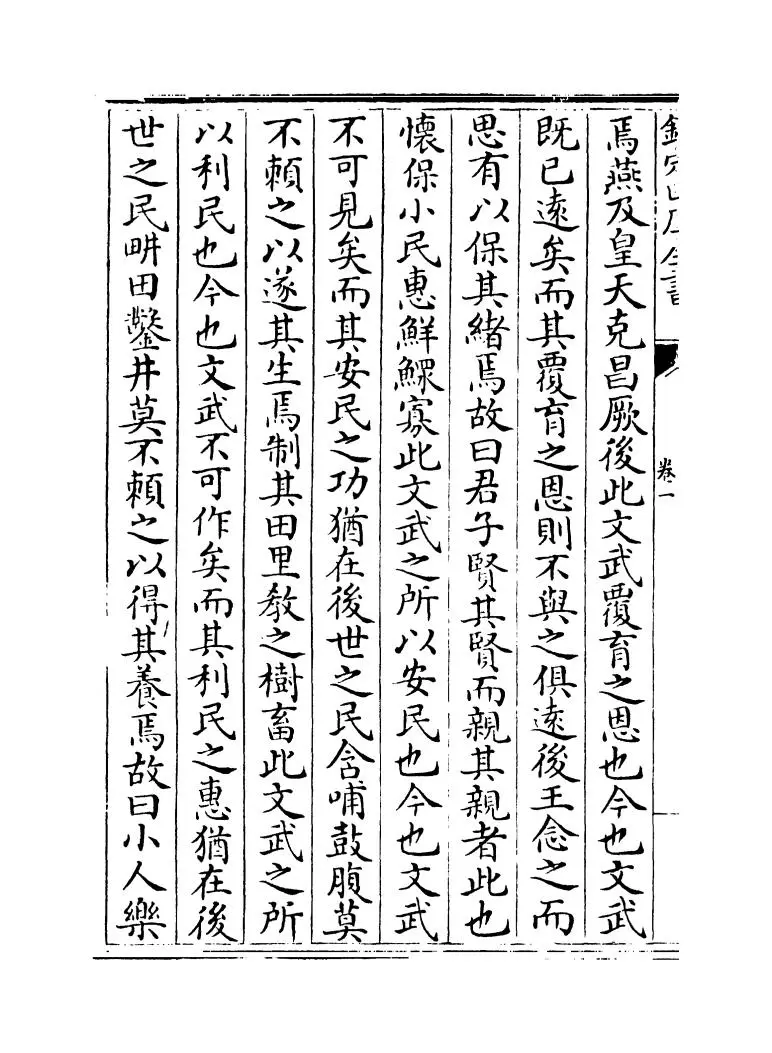 欽定四庫全書
卷一
焉燕及皇天克昌厥後此文武覆育之恩也今也文武
既已遠矣而其覆育之恩則不與之俱遠後王念之而
思有以保其緒焉故曰君子賢其賢而親其親者此也
懷保小民惠鮮鰥寡此文武之所以安民也今也文武
不可見矣而其安民之功猶在後世之民含哺鼓腹莫
不賴之以遂其生焉制其田里教之樹畜此文武之所
以利民也今也文武不可作矣而其利民之惠猶在後
世之民畊田鑿井莫不賴之以得其養焉故曰小人樂